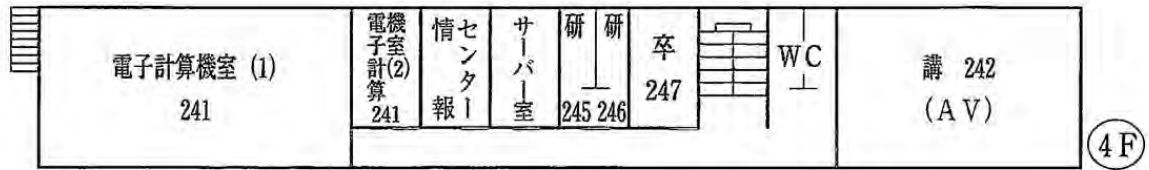 電子計算機室 (1)
241
電子計算
機室(2)
241
情報
センター
サーバー室
研
245
研
246
卒
247
WC
講 242
(AV)
4F